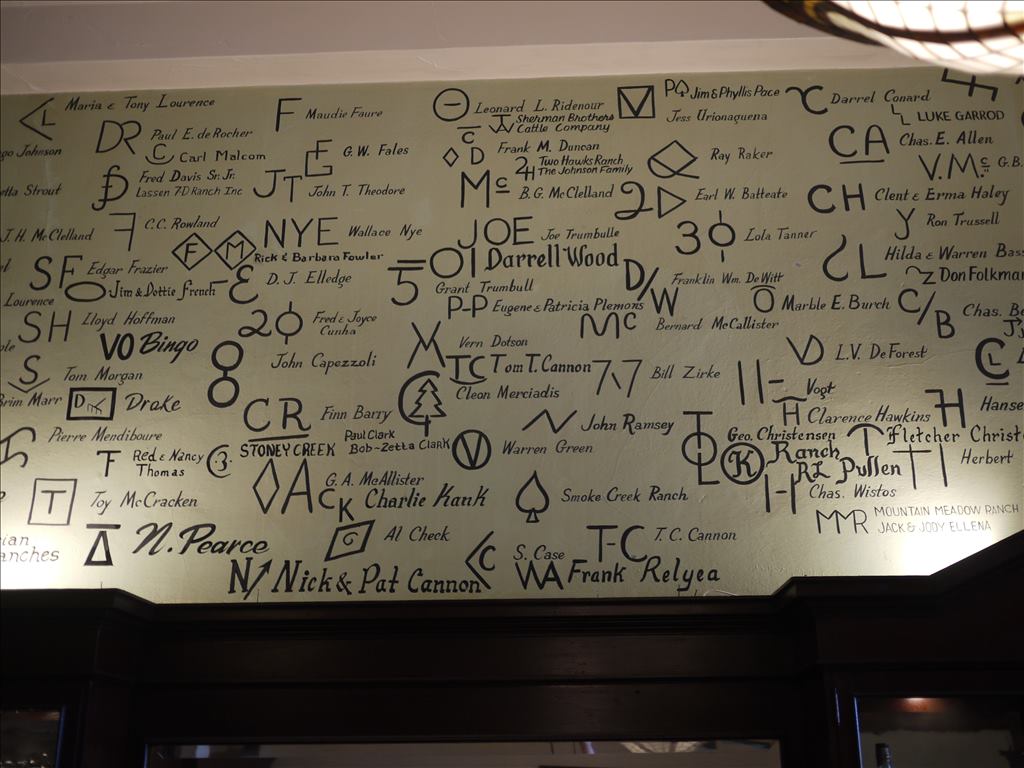 L Maria & Tony Lourence
F Maudie Faure
Leonard L. Ridenour
V Jess Urionaguena
P♤ Jim & Phyllis Pace
Darrel Conard
LL LUKE GARROD
go Johnson
DR Paul E. de Rocher
C Carl Malcom
G.W. Fales
C W Sherman Brothers
Cattle Company
CA Chas. E. Allen
◇ D Frank M. Duncan
2H Two Hawks Ranch
The Johnson Family
Ray Raker
V.Mc G.B.
etta Strout
Fred Davis Sr. Jr.
Lassen 7D Ranch Inc
JT John T. Theodore
Mc B.G. McClelland
2 Earl W. Batteate
CH Clent & Erma Haley
J.H. McClelland
C.C. Rowland
F M Rick & Barbara Fowler
NYE Wallace Nye
JOE Joe Trumbulle
3 Lola Tanner
Y Ron Trussell
SF Edgar Frazier
Jim & Dottie French
D.J. Elledge
5 Grant Trumbull
OI Darrell Wood
D/W Franklin Wm. DeWitt
L Hilda & Warren Bass
Don Folkman
Lourence
SH Lloyd Hoffman
2 Fred & Joyce
Cunha
P-P Eugene & Patricia Plemons
Mc Bernard McCallister
O Marble E. Burch
C/B Chas. Be
VO Bingo
8 John Capezzoli
Vern Dotson
TC Tom T. Cannon
77 Bill Zirke
VD L.V. DeForest
CL
S Tom Morgan
Brim Marr
D Drake
CR Finn Barry
C Cleon Merciadis
N John Ramsey
Vogt
H Clarence Hawkins
H Hanse
Pierre Mendiboure
F Red & Nancy
Thomas
3 STONEY CREEK
Paul Clark
Bob-Zetta Clark
V Warren Green
Geo. Christensen
K Ranch
T Fletcher Christ
T Toy McCracken
◇A G.A. McAllister
CK Charlie Kank
♤ Smoke Creek Ranch
RL Pullen
Herbert
Chas. Wistos
MMR MOUNTAIN MEADOW RANCH
JACK & JODY ELLENA
anches
N. Pearce
G Al Check
C S. Case
T-C T.C. Cannon
N Nick & Pat Cannon
WA Frank Relyea